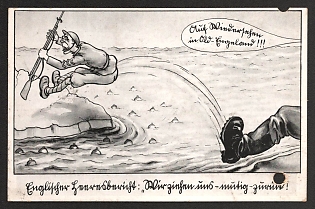 Auf Wiedersehen
in Old-Engeland!!!
Englischer Heeresbericht: „Wir ziehen uns-mutig-zurück!